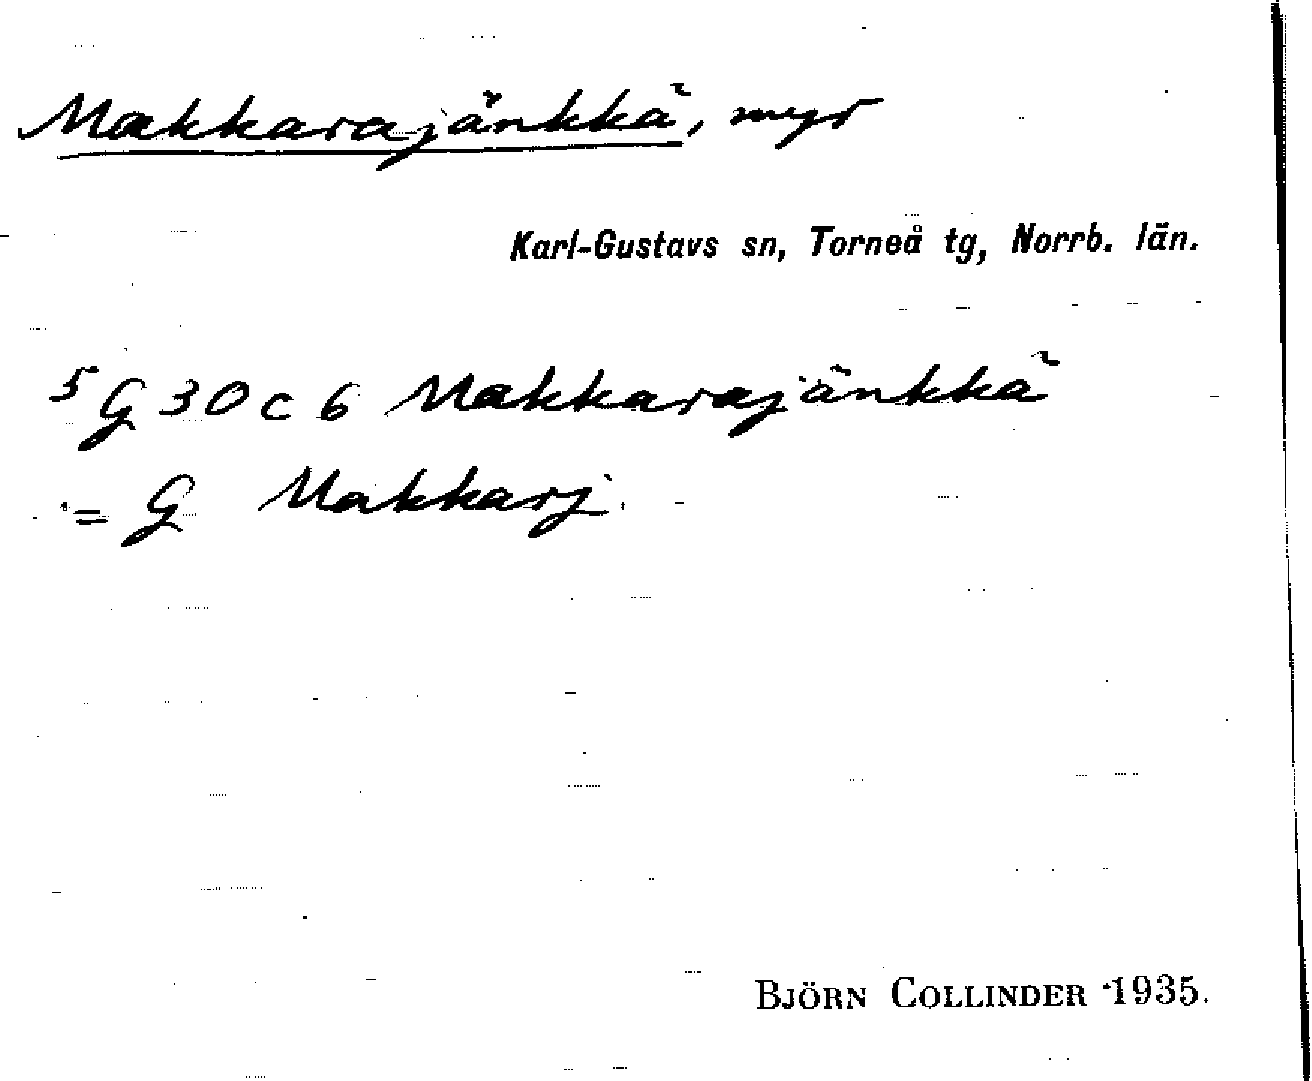 Makkarajänkkä, myr
Karl-Gustavs sn, Torneå tg, Norrb. län.
5 G 30 c 6 Makkarajänkkä
= G Makkarj.
BJÖRN COLLINDER 1935.